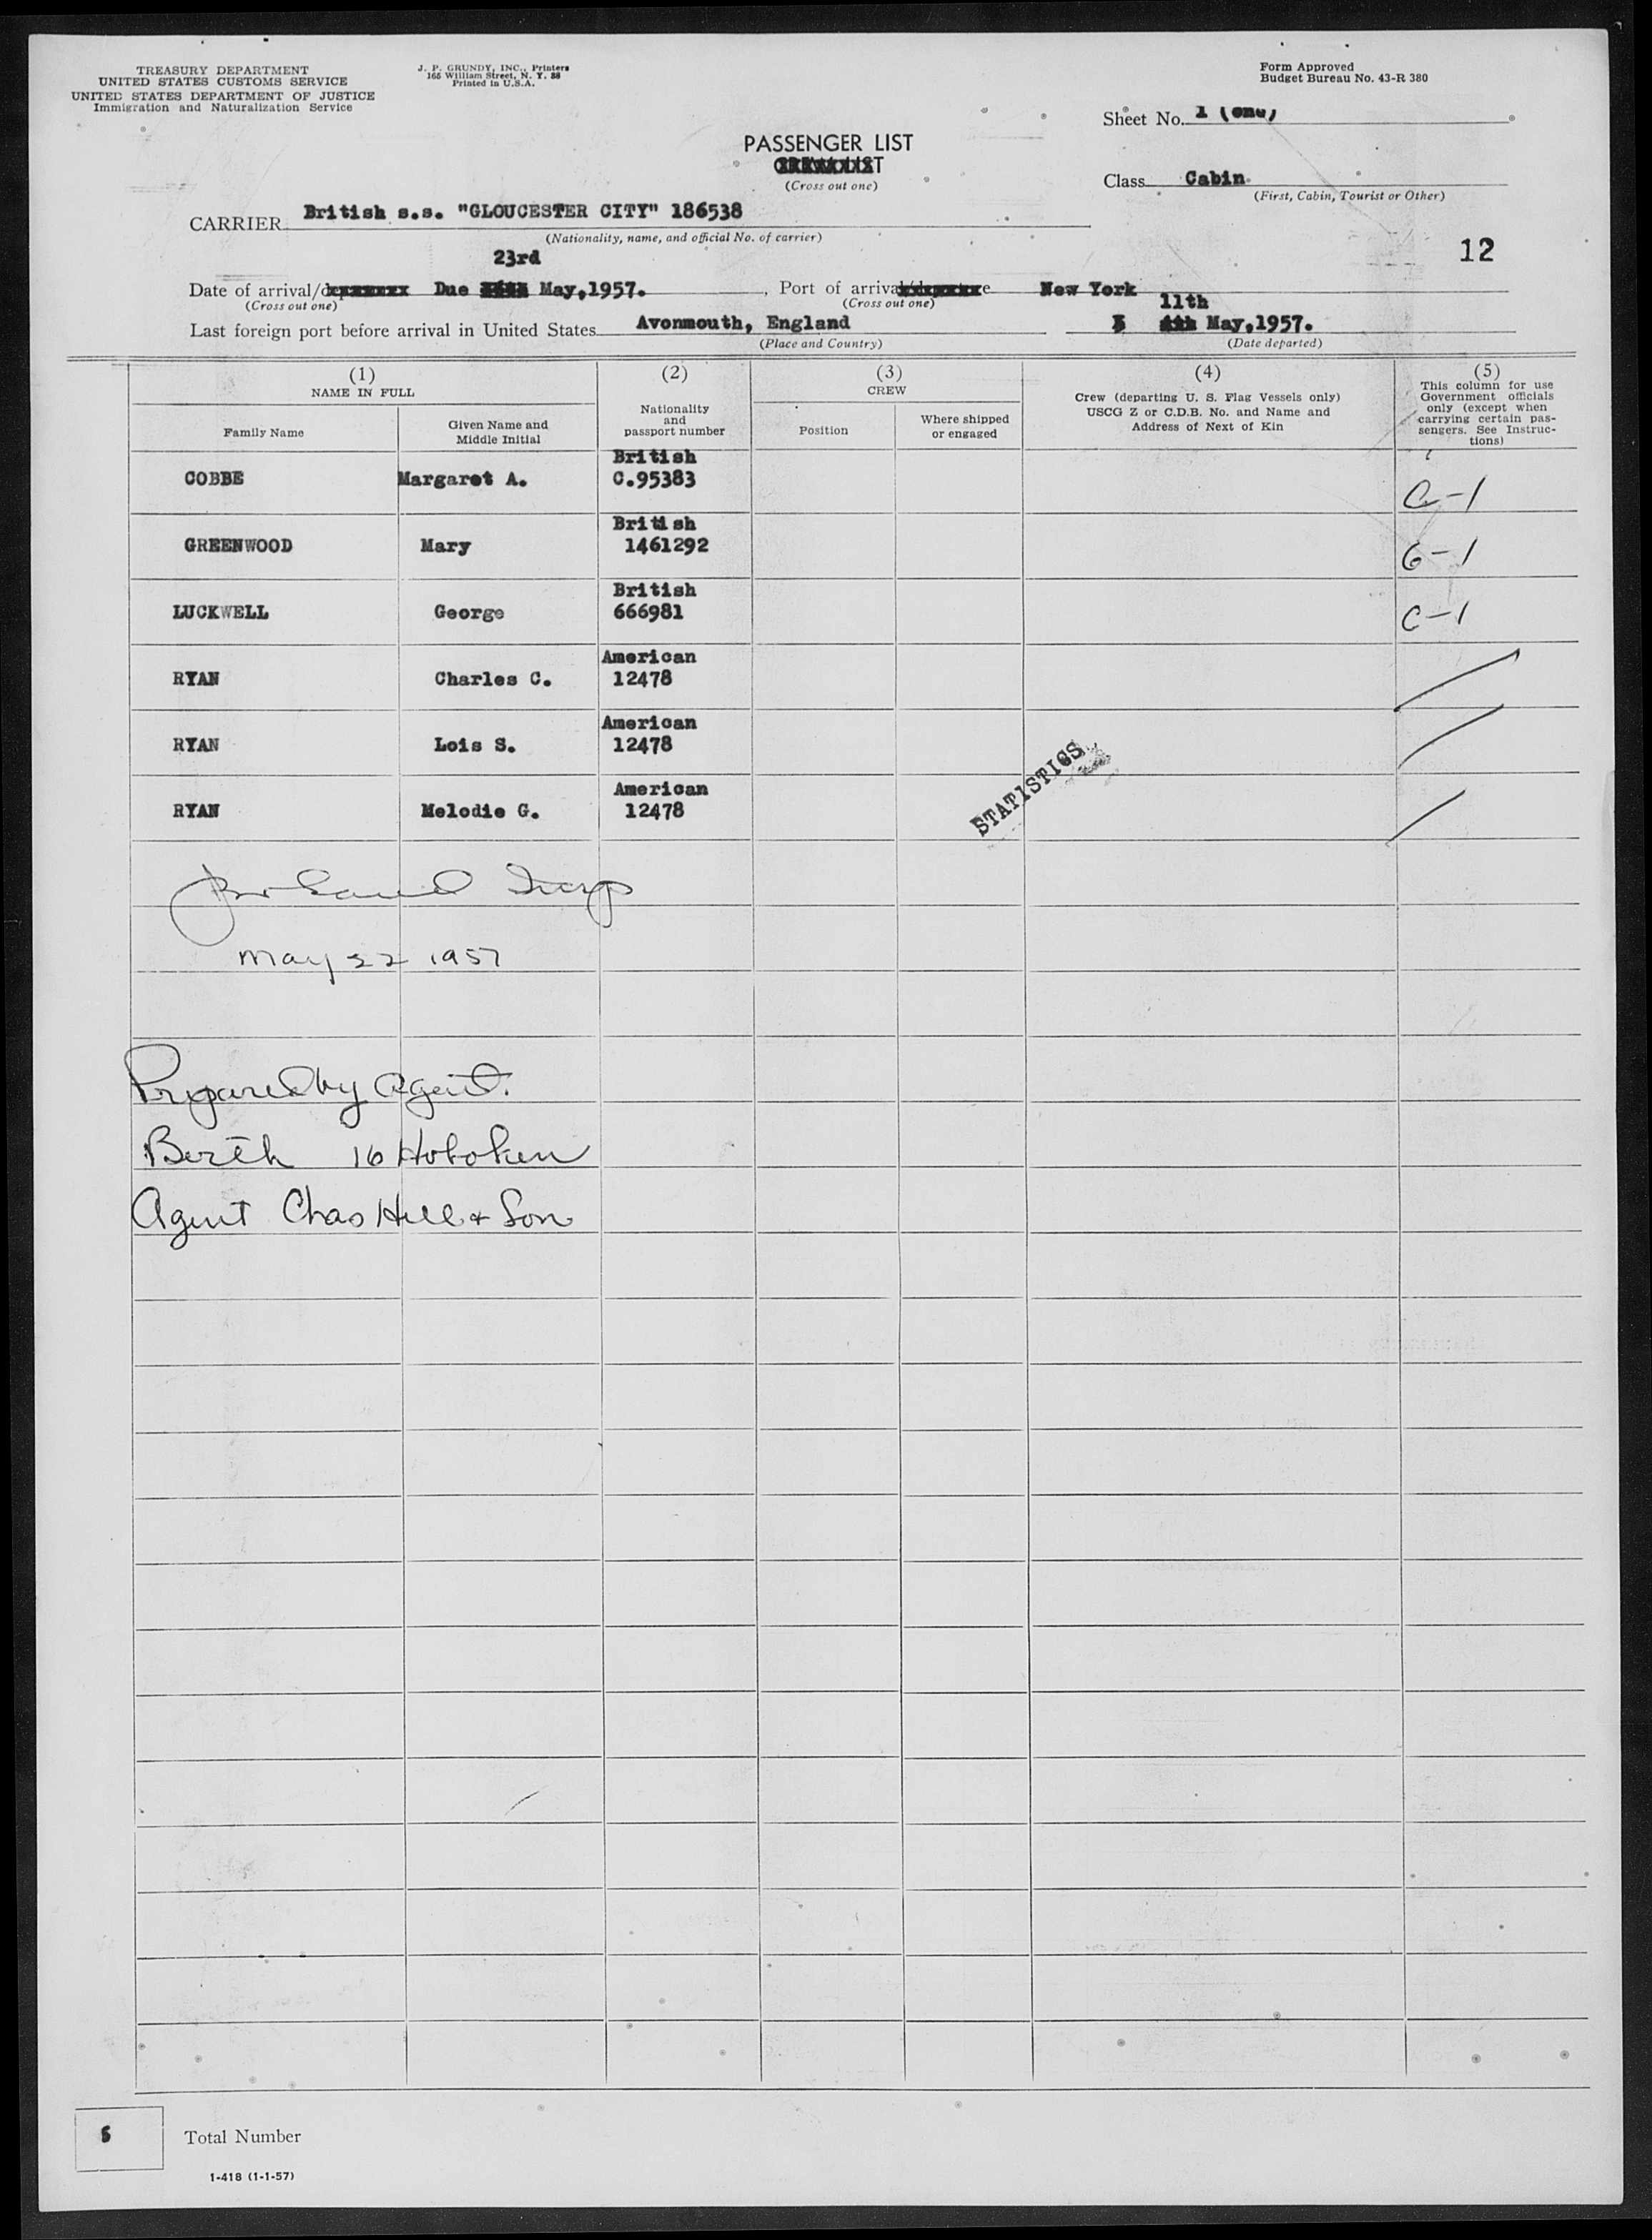 TREASURY DEPARTMENT
UNITED STATES CUSTOMS SERVICE
UNITED STATES DEPARTMENT OF JUSTICE
Immigration and Naturalization Service
J. P. GRUNDY, INC., Printers
165 William Street, N. Y. 38
Printed in U.S.A.
Form Approved
Budget Bureau No. 43-R 380
Sheet No. 1 (one)
PASSENGER LIST
(Cross out one)
Class Cabin
(First, Cabin, Tourist or Other)
CARRIER British s.s. "GLOUCESTER CITY" 186538
(Nationality, name, and official No. of carrier)
12
23rd
Date of arrival/ Due May,1957. , Port of arrival New York
(Cross out one) (Cross out one)
11th
Last foreign port before arrival in United States Avonmouth, England May,1957.
(Place and Country) (Date departed)
(1) (2) (3) (4) (5)
NAME IN FULL
Family Name
Given Name and
Middle Initial
Nationality
and
passport number
CREW
Position
Where shipped
or engaged
Crew (departing U. S. Flag Vessels only)
USCG Z or C.D.B. No. and Name and
Address of Next of Kin
This column for use
Government officials
only (except when
carrying certain pas-
sengers. See Instruc-
tions)
British
COBBE Margaret A. C.95383
British
GREENWOOD Mary 1461292 G-1
British
LUCKWELL George 666981 C-1
American
RYAN Charles C. 12478
American
RYAN Lois S. 12478
American
RYAN Melodie G. 12478
STATISTICS
May 22 1957
Prepared by Agent.
Berth 16 Hoboken
Agent Chas Hill & Son
6 Total Number
I-418 (1-1-57)